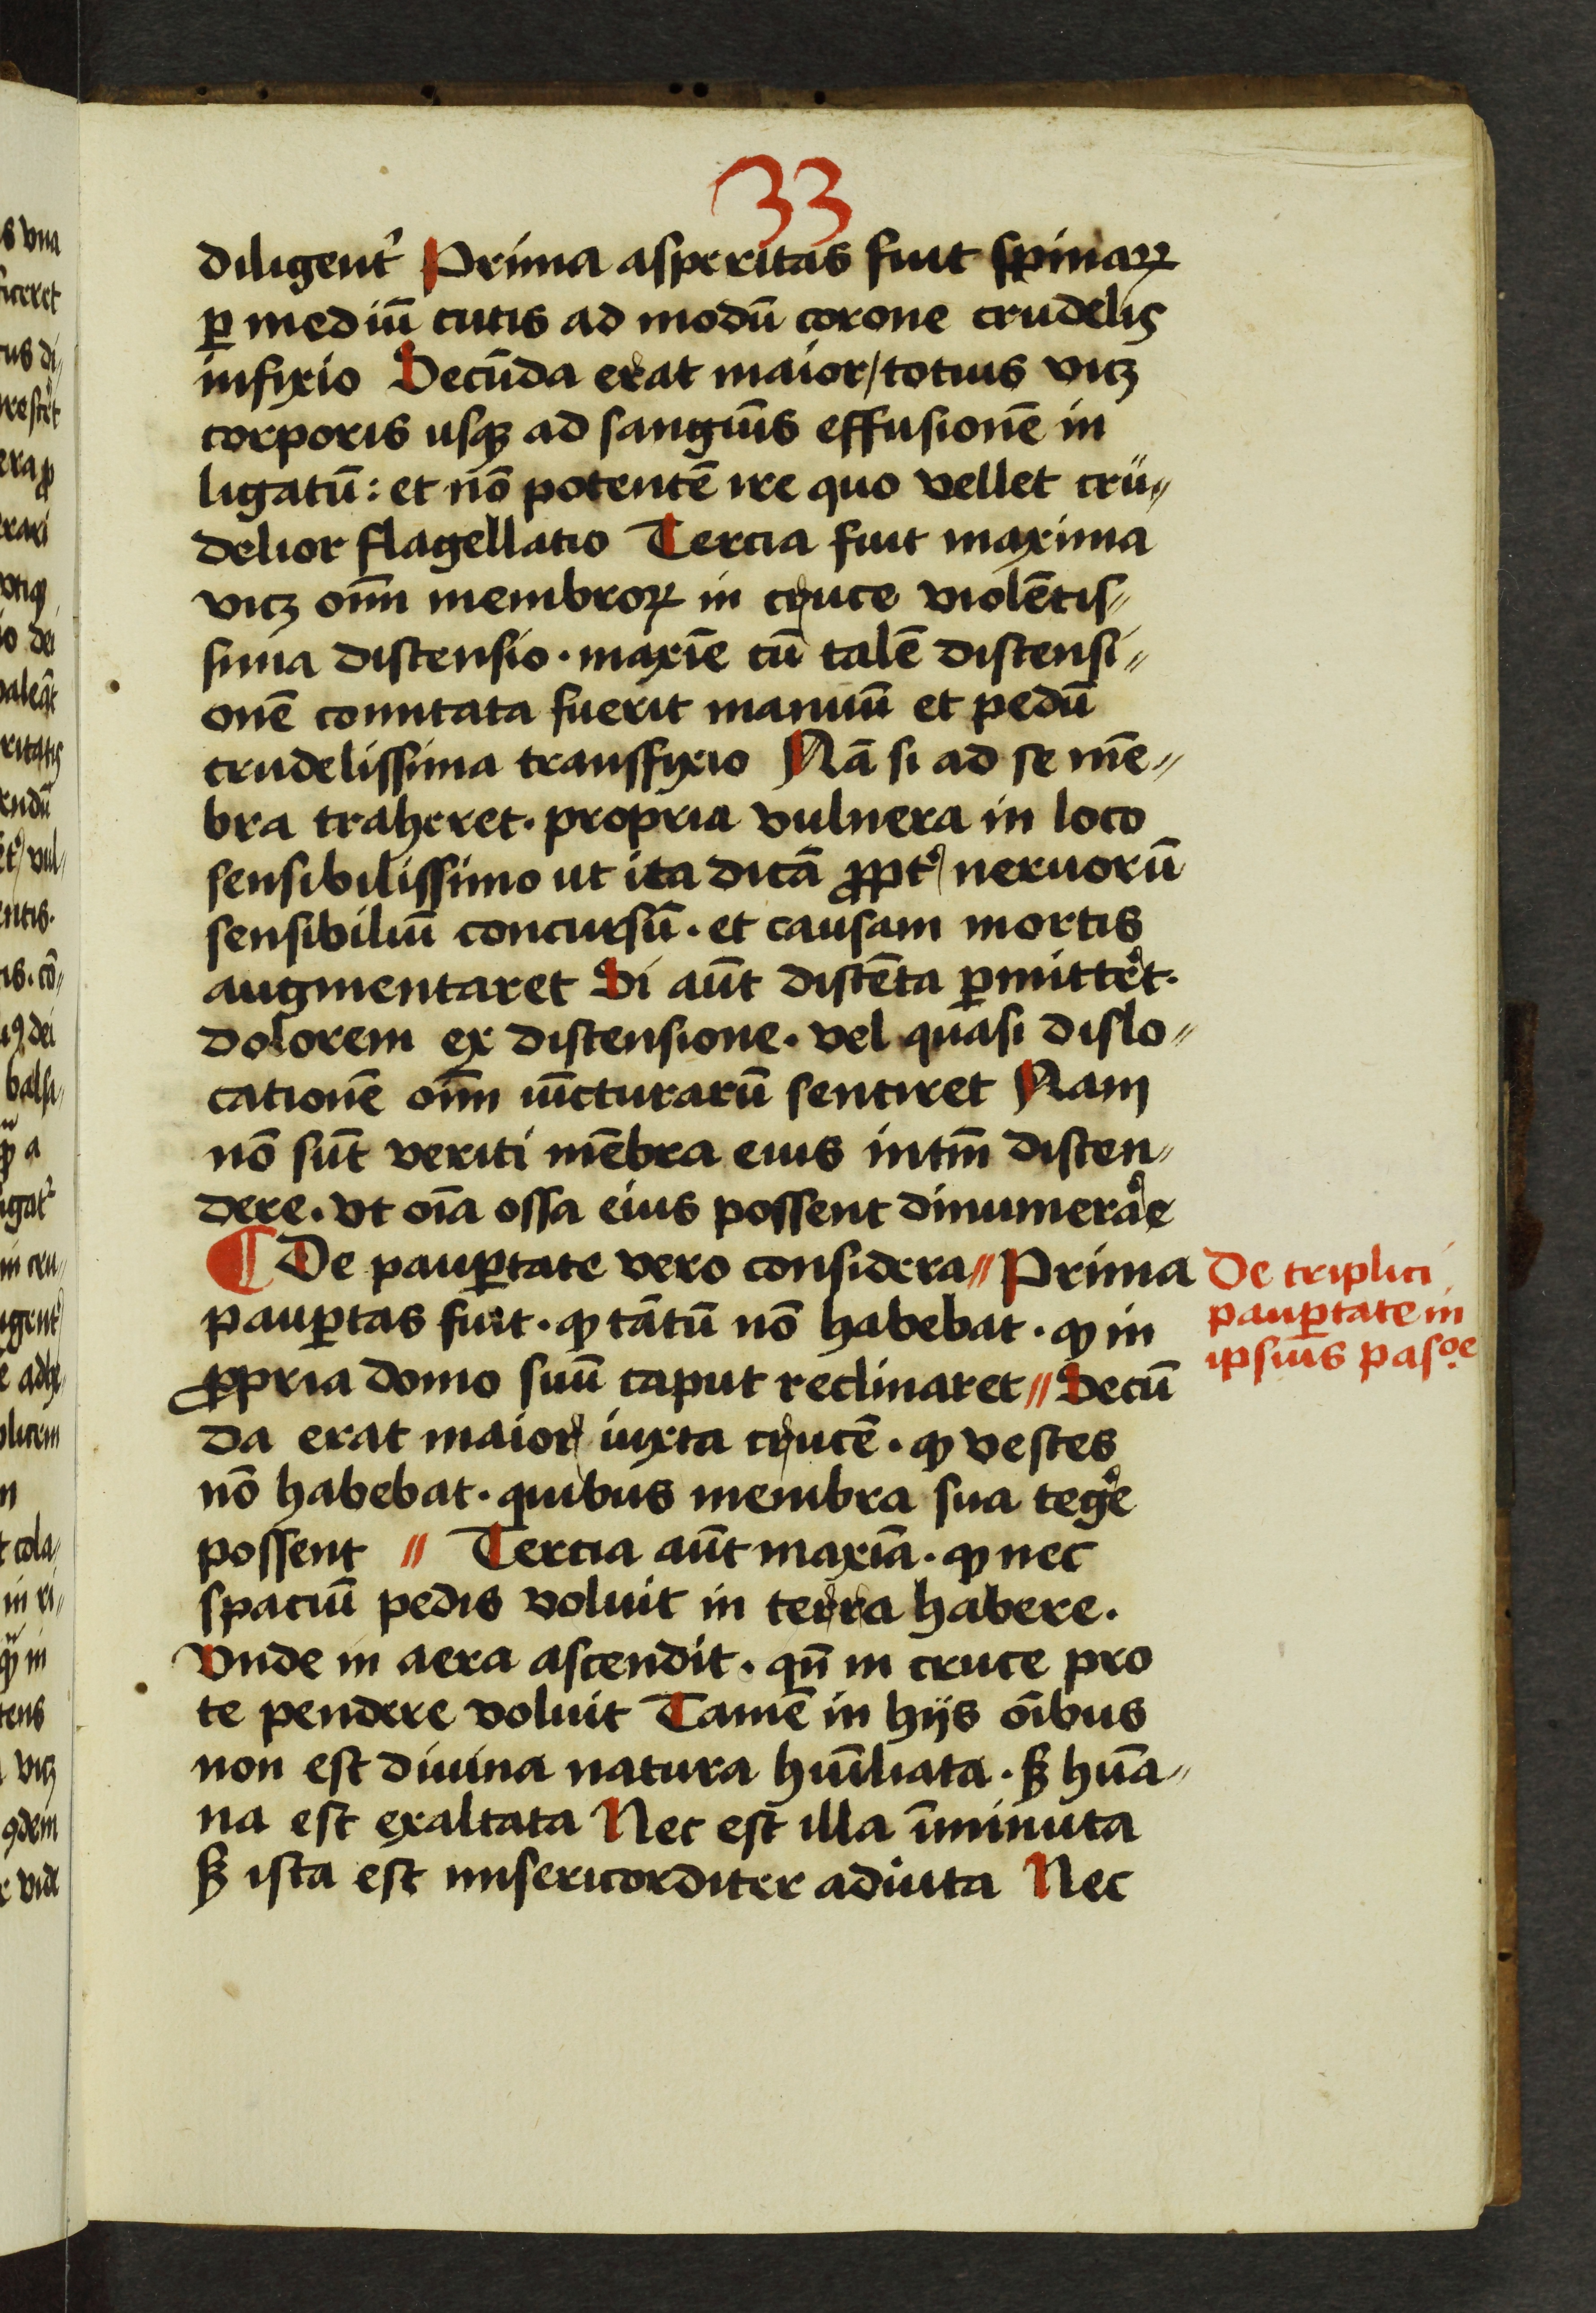 33
diligent᷑ Prima asperitas fuit spinaꝝ
ꝑ mediū cutis ad modū corone crudelis
infixio Secūda erat maior/totius vicꝫ
corporis usqꝫ ad sanguīs effusionē in
ligatū: et nō potentē ire quo vellet crü〃
delior flagellatio Tercia fuit maxima
vicꝫ oīm membroꝝ in cruce violētis〃
sima distensio · maxīe cū talē distensi〃
onē comitata fuerit manuū et pedū
crudelissima transfixio Nā si ad se mē〃
bra traheret · propria vulnera in loco
sensibilissimo ut ita dicā ꝓpt᷑ neruorū
sensibiliū concursū · et causam mortis
augmentaret Si aūt distēta ꝑmitt᷑et ·
dolorem ex distensione · vel quasi dislo〃
cationē oīm iūcturarū sentiret Nam
nō sūt veriti mēbra eius intm̄ disten〃
dere · vt oīa ossa eius possent dinumera᷑e
¶ De pauꝑtate vero considera〃 Prima
pauꝑtas fuit · ꝙ tātū nō habebat · ꝙ in
ꝓpria domo suū caput reclinaret〃 Secū
da erat maior iuxta crucē · ꝙ vestes
nō habebat · quibus membra sua teg᷑e
possent 〃 Tercia aūt maxīa · ꝙ nec
spaciū pedis voluit in terra habere ·
Vnde in aera ascendit · qn̄ in cruce pro
te pendere voluit Tamē in hijs oībus
non est diuina natura hūiliata · sꝫ hūa〃
na est exaltata Nec est illa īminuta
sꝫ ista est misericorditer adiuta Nec
De triplici
pauꝑtate in
ipsius pasoe